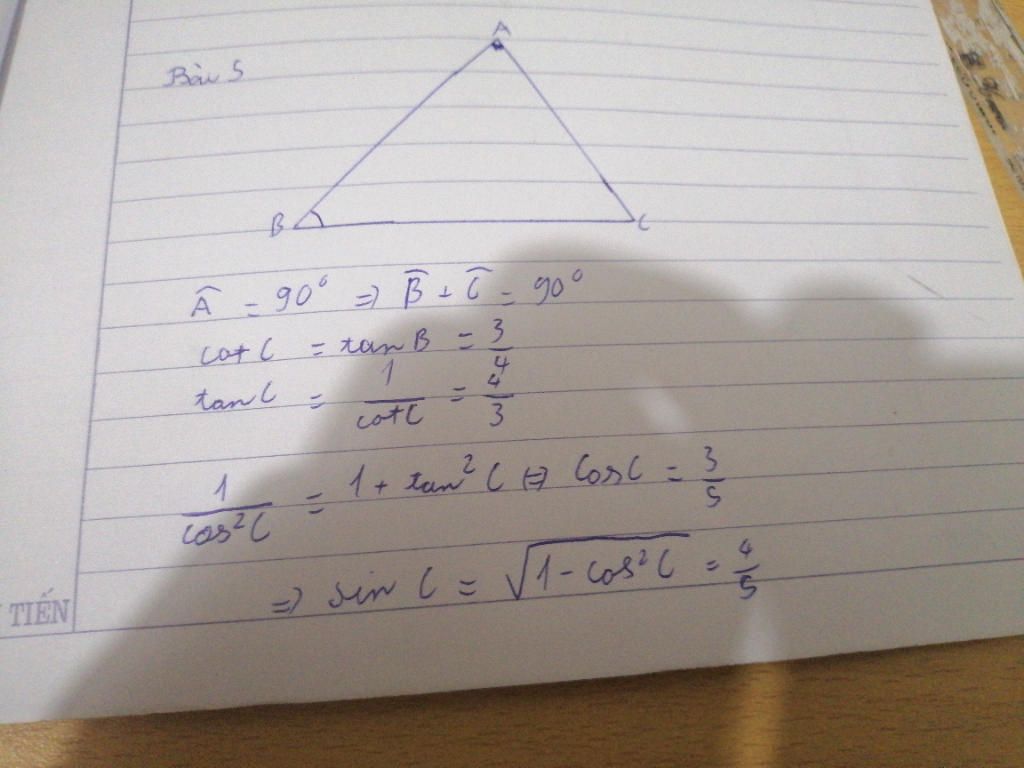 A
Bài 5
B
C
Â = 90° => B̂ + Ĉ = 90°
cot C = tan B = 3/4
tan C = 1/cot C = 4/3
1/cos²C = 1 + tan² C => Cos C = 3/5
=> sin C = √(1 - cos² C) = 4/5
TIẾN